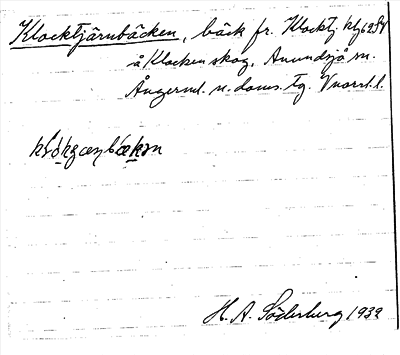 Klocktjärnbäcken, bäck fr. Klocktj.
å Klocken skog, Anundsjö sn.
Ångerml. n. doms. tg. Vnorrl. l.
H. A. Söderberg 1932